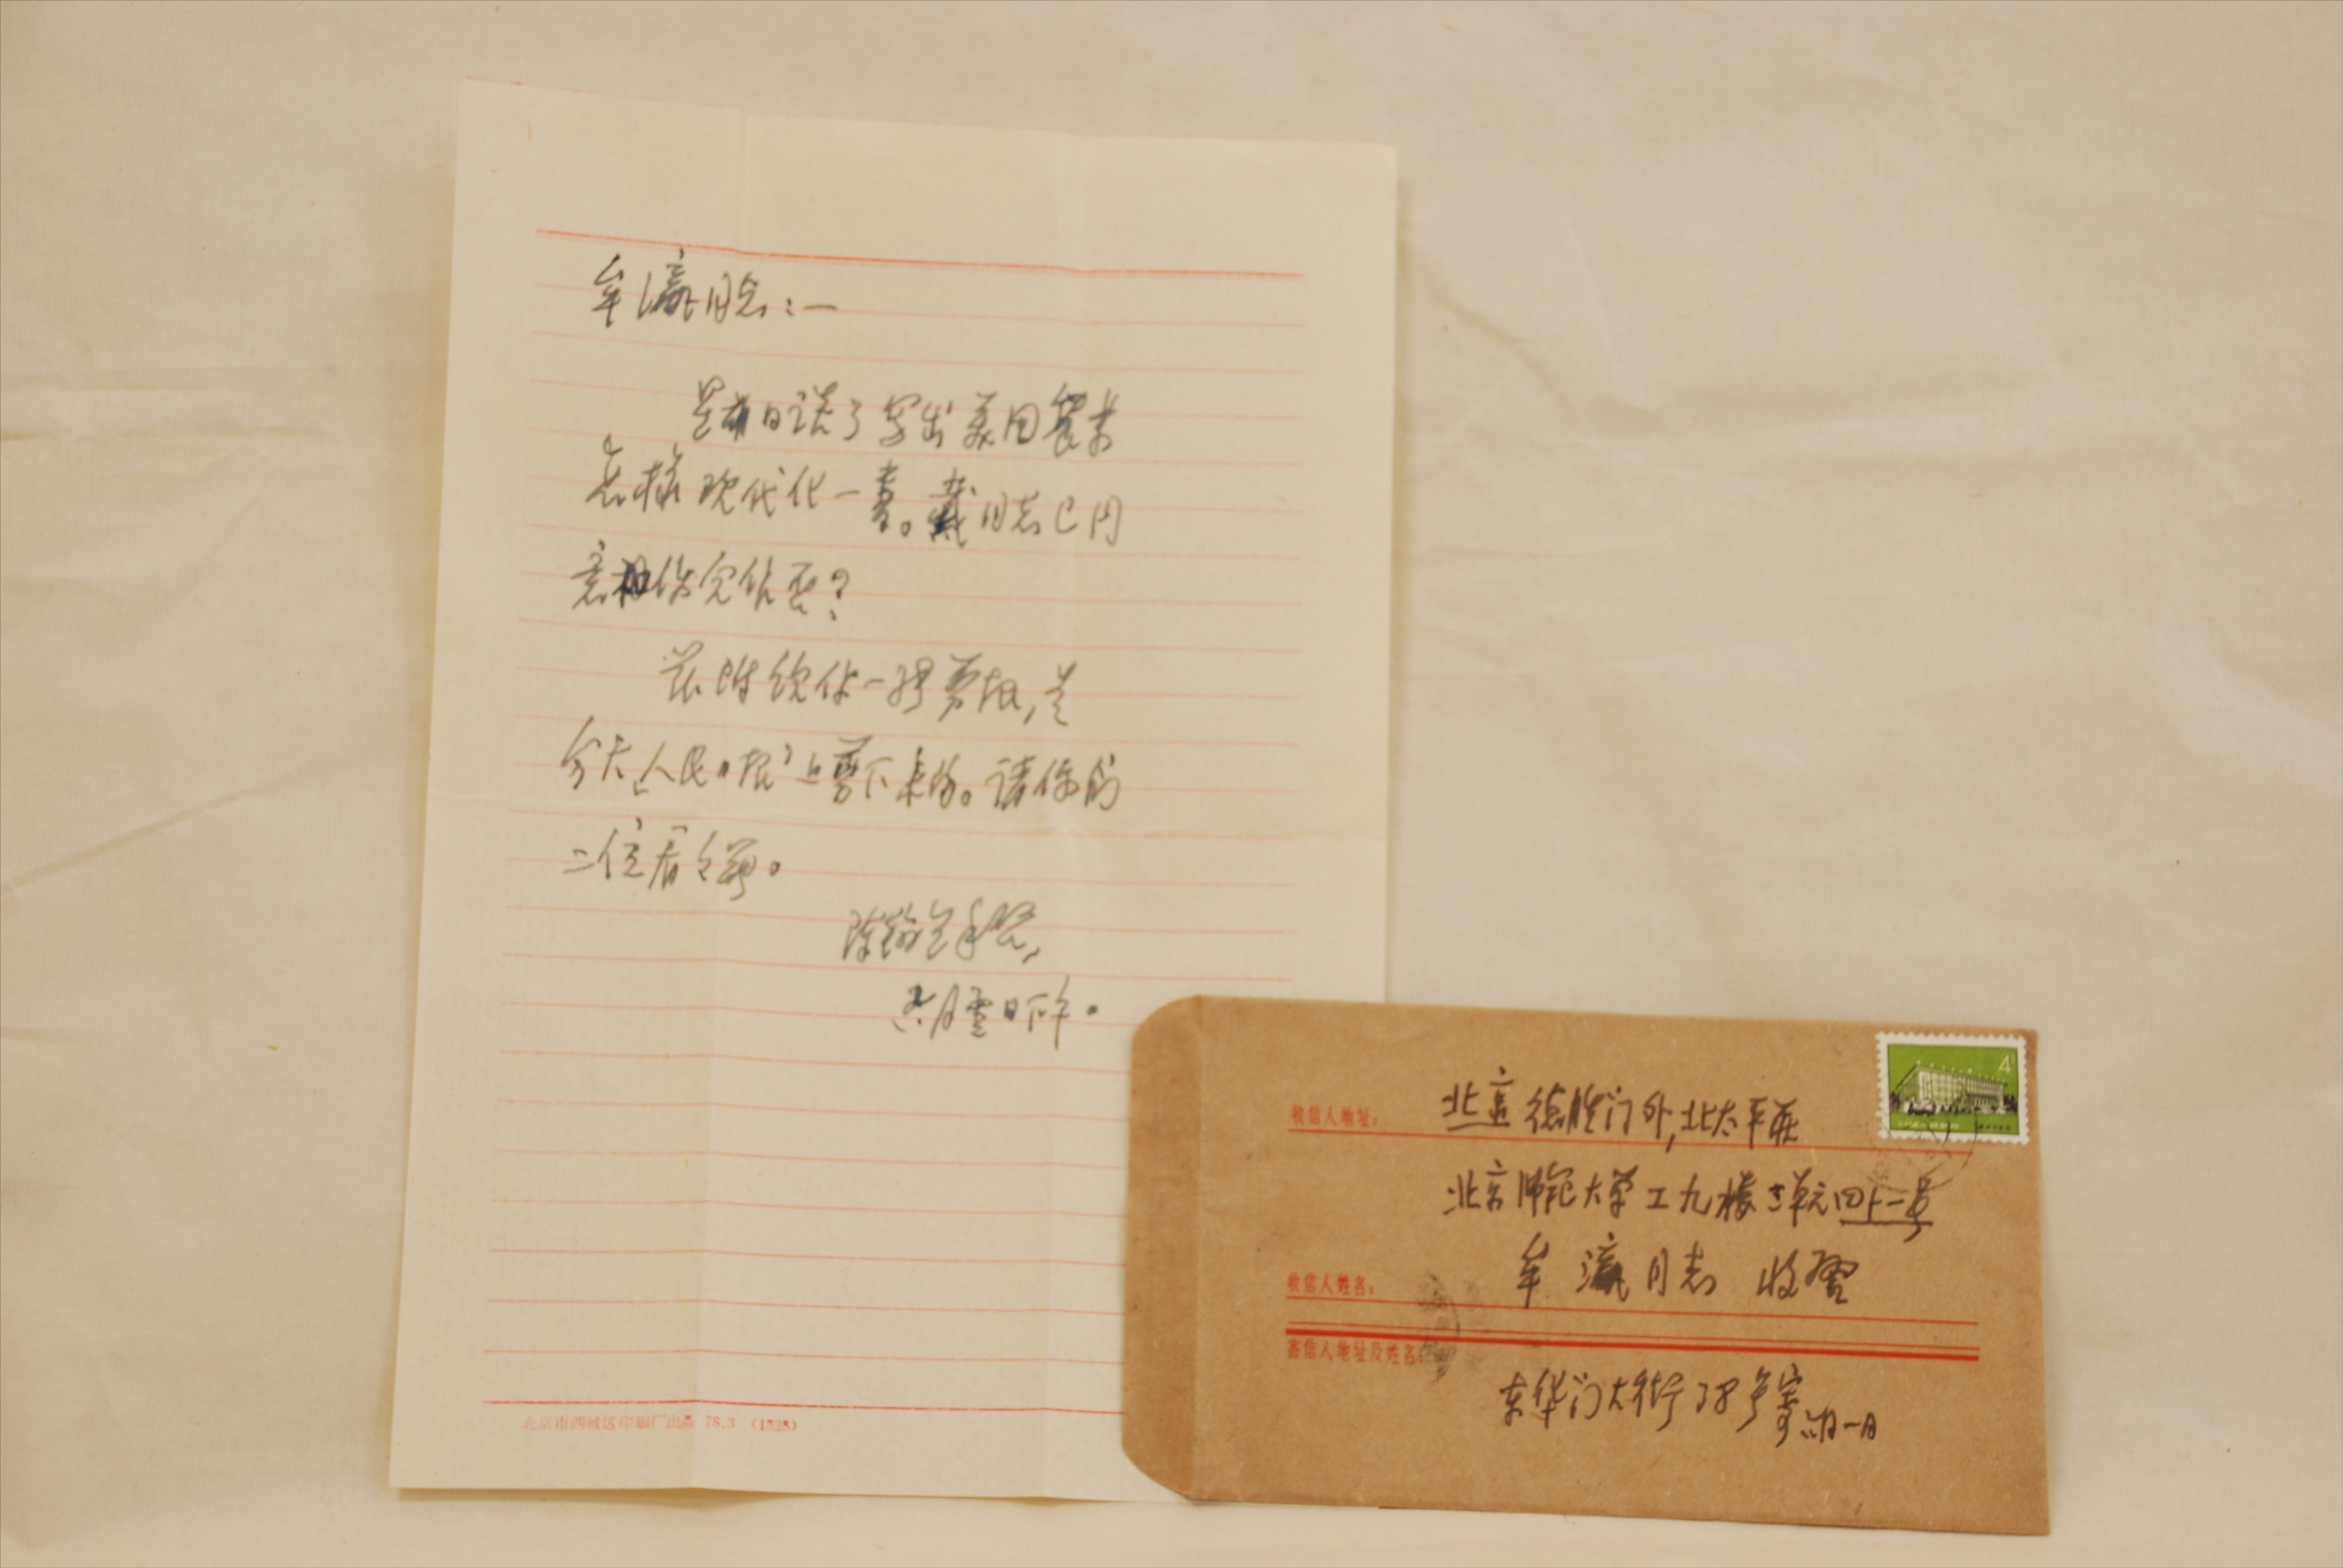 牟瀛同志：—
是前日谈了写出美国农業
怎样现代化一書。戴同志已同
意和你合作否？
兹附给你一张剪报，是
今天“人民日报”上剪下来的。请你们
二位看看。
陈翰笙手啓
六月壹日下午。
北京市西城区印刷厂出品 78.3 (1328)
收信人地址：
北京德胜门外，北太平莊
北京师范大学工九楼三单元四上一号
收信人姓名：
牟瀛同志 收啓
寄信人地址及姓名：
东华门大街38号寄 六月一日
4